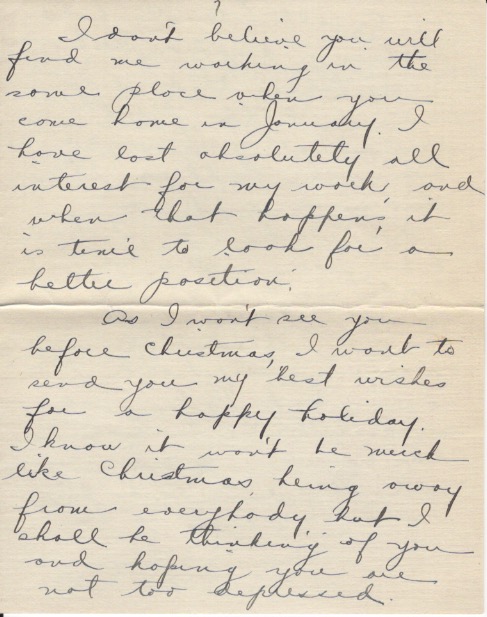 I don't believe you will
find me working in the
same place when you
come home in January. I
have lost absolutely all
interest for my work, and
when that happens, it
is time to look for a
better position.
As I won't see you
before Christmas, I want to
send you my best wishes
for a happy holiday.
I know it won't be much
like Christmas being away
from everybody but I
shall be thinking of you
and hoping you are
not too depressed.